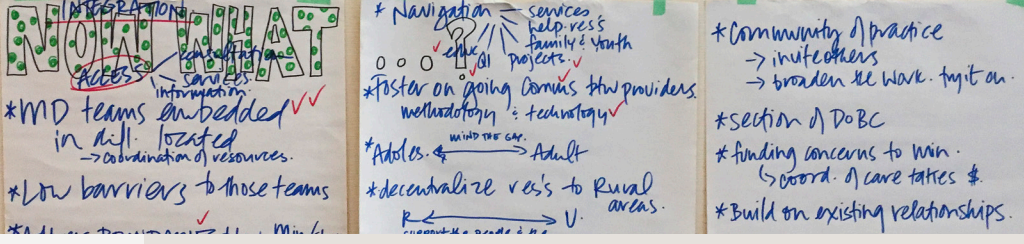 INTEGRATION
NOW WHAT
ACCESS
consultation
services
information.
*MD teams embedded
in diff. located
→ coordination of resources.
*Low barriers to those teams
* Navigation
services
help. res's
family & youth
projects.
QI
educ
...?
*Foster on going Comms btw providers.
methodology & technology
MIND THE GAP.
*Adoles. ↔ Adult
*decentralize res's to Rural
areas.
R ↔ U.
support the people & the
*Community of practice
→ invite others
→ broaden the work. try it on.
*section of DoBC
*funding concerns to min.
↳ coord. of care takes $.
*Build on existing relationships.